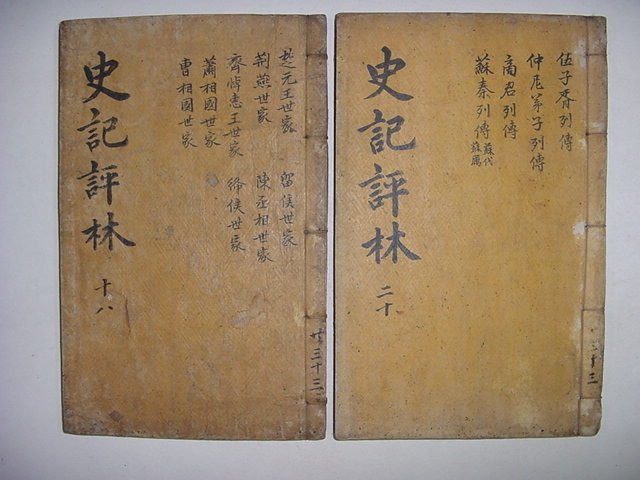 楚元王世家
荆燕世家
齊悼惠王世家
蕭相國世家
曹相國世家
留侯世家
陳丞相世家
絳侯世家
史記評林
十八
共三十三
伍子胥列傳
仲尼弟子列傳
商君列傳
蘇秦列傳
蘇代
蘇厲
史記評林
二十
三十三